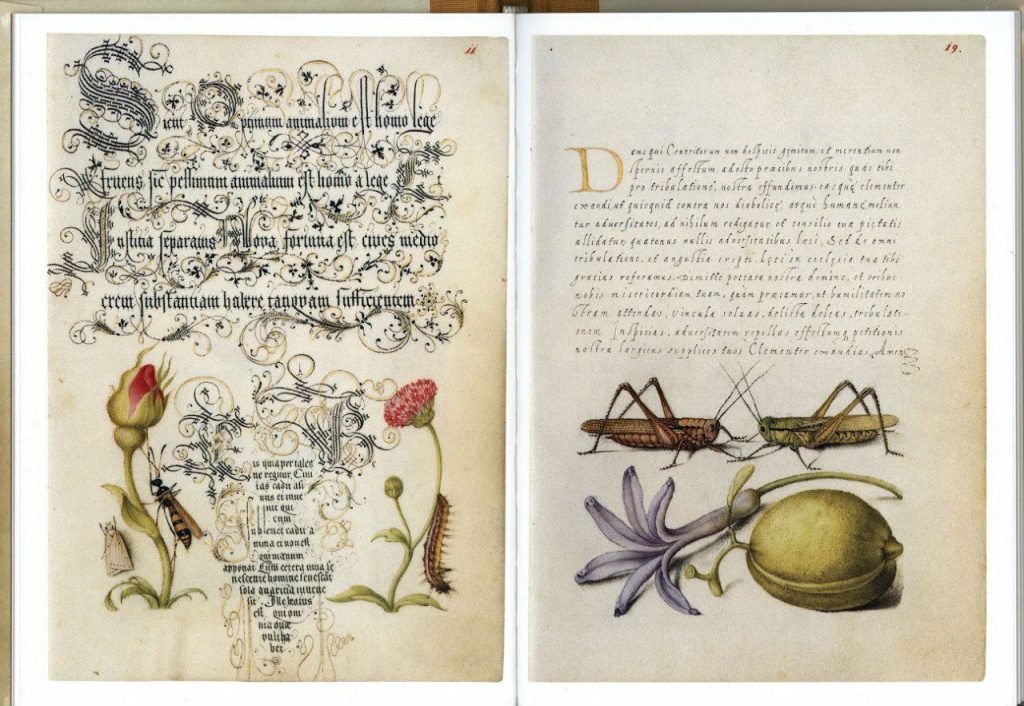 11
Sicut Optimum animalium est homo lege
fruens, sic pessimum animalium est homo a lege E
Iustitia separatus Nova fortuna est, cives medio
crem substantiam habere tanquam sufficientem
is quia per tales
ne regitur. Civi
tas cadit asi
nus et inue
nit qui
eum
subleuet cadit a
nima et non est
qui manum
apponat Cum cetera vitia se
nescente homine senescāt
sola avaritia iuvene
scit. Ille beatus
est qui om
nia quae
vult ha
bet.
19.
Deus qui Contritorum non despicis gemitum, et merentium non
spernis affectum, adesto praecibus nostris quas tibi
pro tribulatione, nostra effundimus: easque clementer
exaudi, ut quicquid contra nos diabolicę, atque humanę moliun
tur adversitates, ad nihilum redigatur, et consilio tuę pietatis
allidatur, quatenus nullis adversitatibus laesi, Sed de omni
tribulatione, et angustia erepti, Leti in ecclesia tua tibi
gratias referamus. Dimitte peccata nostra domine, et tribue
nobis misericordiam tuam, quam praecamur, ut humilitatem no
stram attendas, vincula soluas, delicta deleas, tribulati-
onem Inspicias, adversitatem repellas effectumque petitionis
nostrae largiens supplices tuos Clementer exaudias. Amen